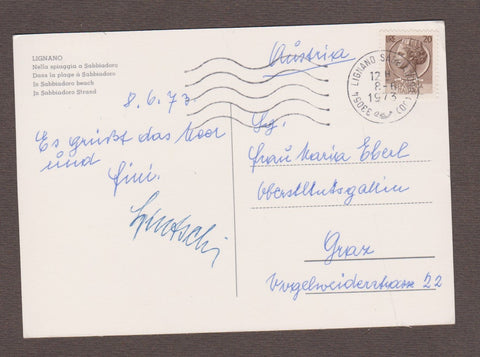 LIGNANO
Nella spiaggia a Sabbiadoro
Dans la plage à Sabbiadoro
In Sabbiadoro beach
In Sabbiadoro Strand
8.6.73
Es grüßt das Meer
und
Austria
LIRE 20
33054 LIGNANO
12
8-6
1973
Frau Maria Eberl
Oberstltnsgattin
Graz
Vogelweiderstrasse 22